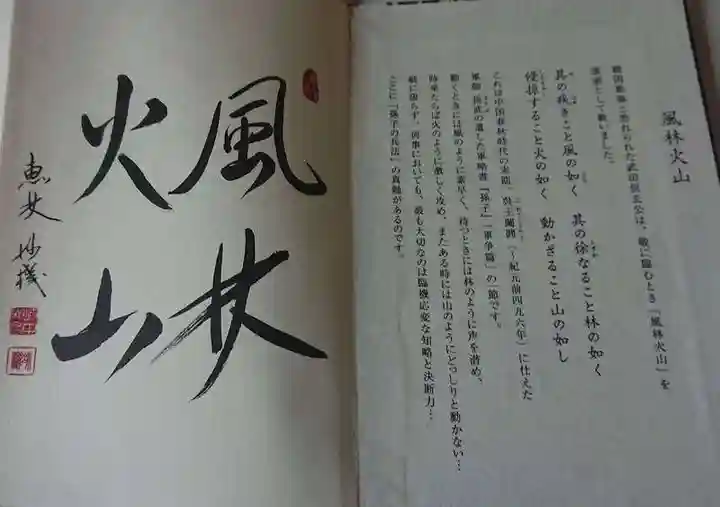 風林火山
戦国動乱に恐れられた武田信玄公は、敵に臨むとき「風林火山」を
軍旗として戦いました。
其の疾きこと風の如く 其の徐なること林の如く
侵掠すること火の如く 動かざること山の如し
これは中国春秋時代の末期、呉王闔閭(～紀元前四九六年)に仕えた
軍師 孫武の遺した軍略書『孫子』「軍争篇」の一節です。
動くときには風のように素早く、待つときには林のように声を潜め、
時来たらば火のように激しく攻め、またある時には山のようにどっしりと動かない…
戦に限らず、何事においても、最も大切なのは臨機応変な知略と決断力…
ここに『孫子の兵法』の真髄があるのです。
風林
火山